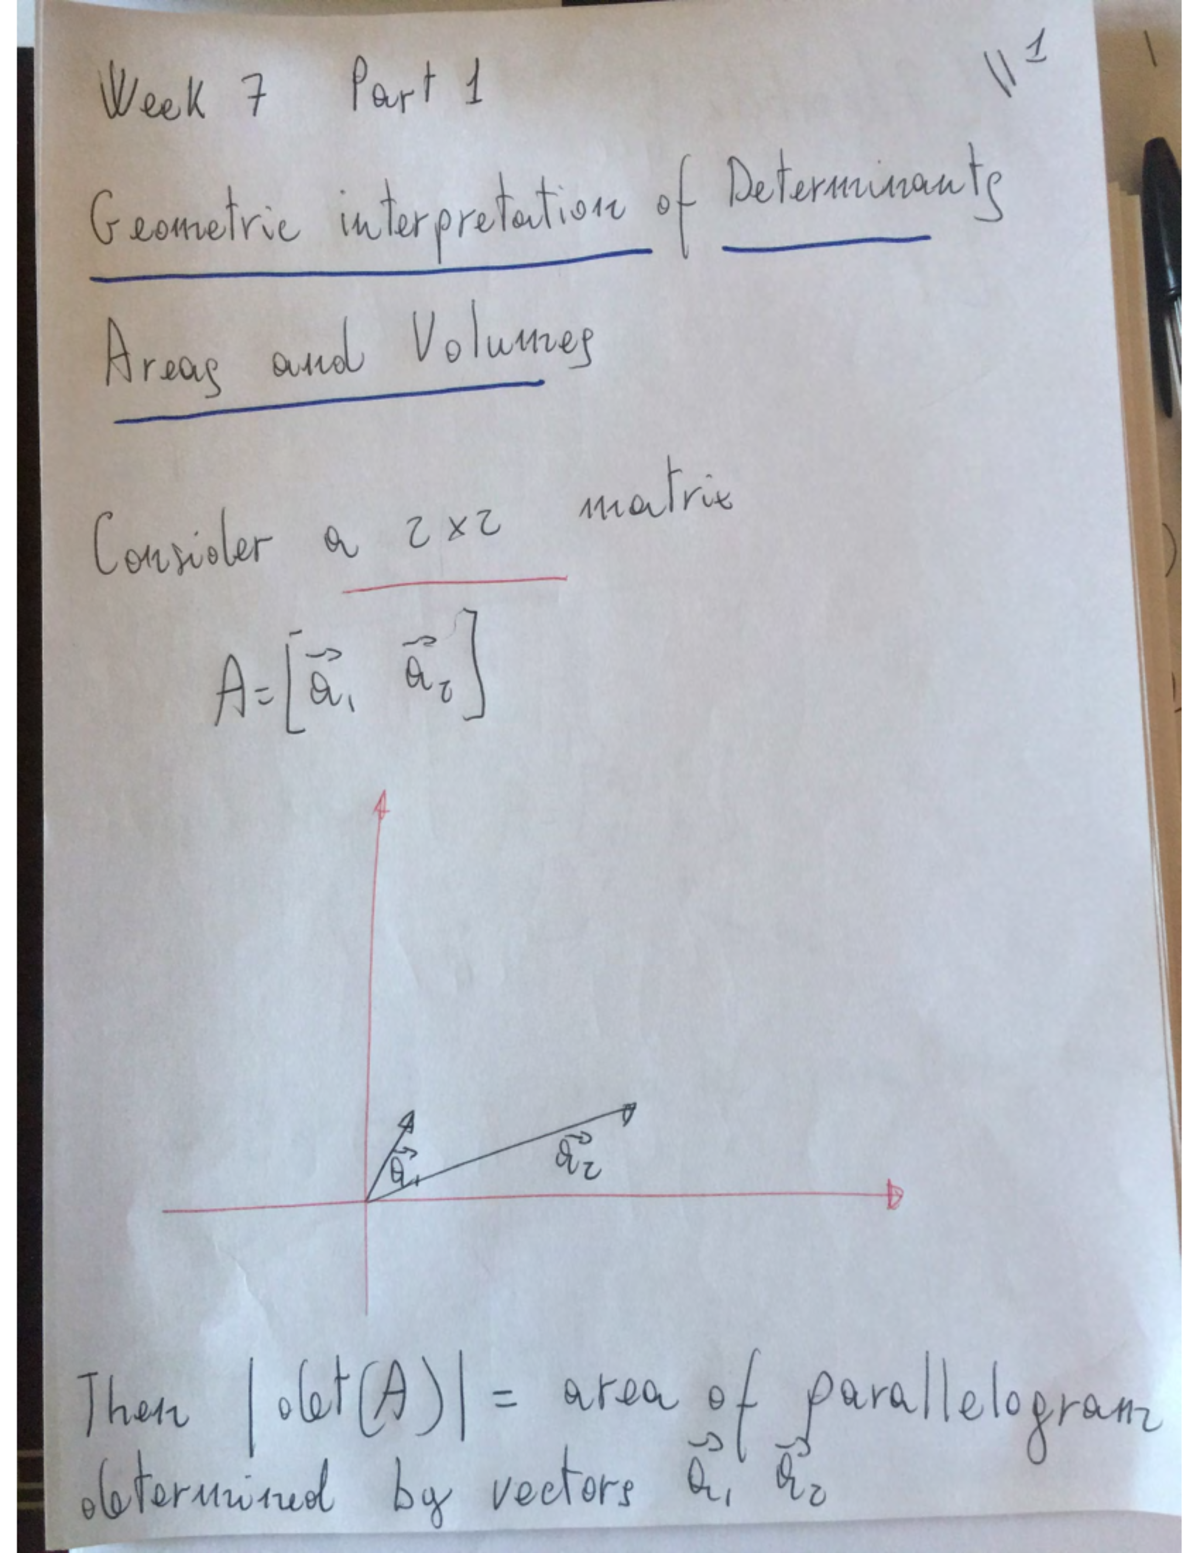 Week 7 Part 1
1
Geometric interpretation of Determinants
Areas and Volumes
Consider a 2×2 matrix
A=[a⃗₁ a⃗₂]
a⃗₁ a⃗₂
Then |det(A)| = area of parallelogram
determined by vectors a⃗₁ a⃗₂